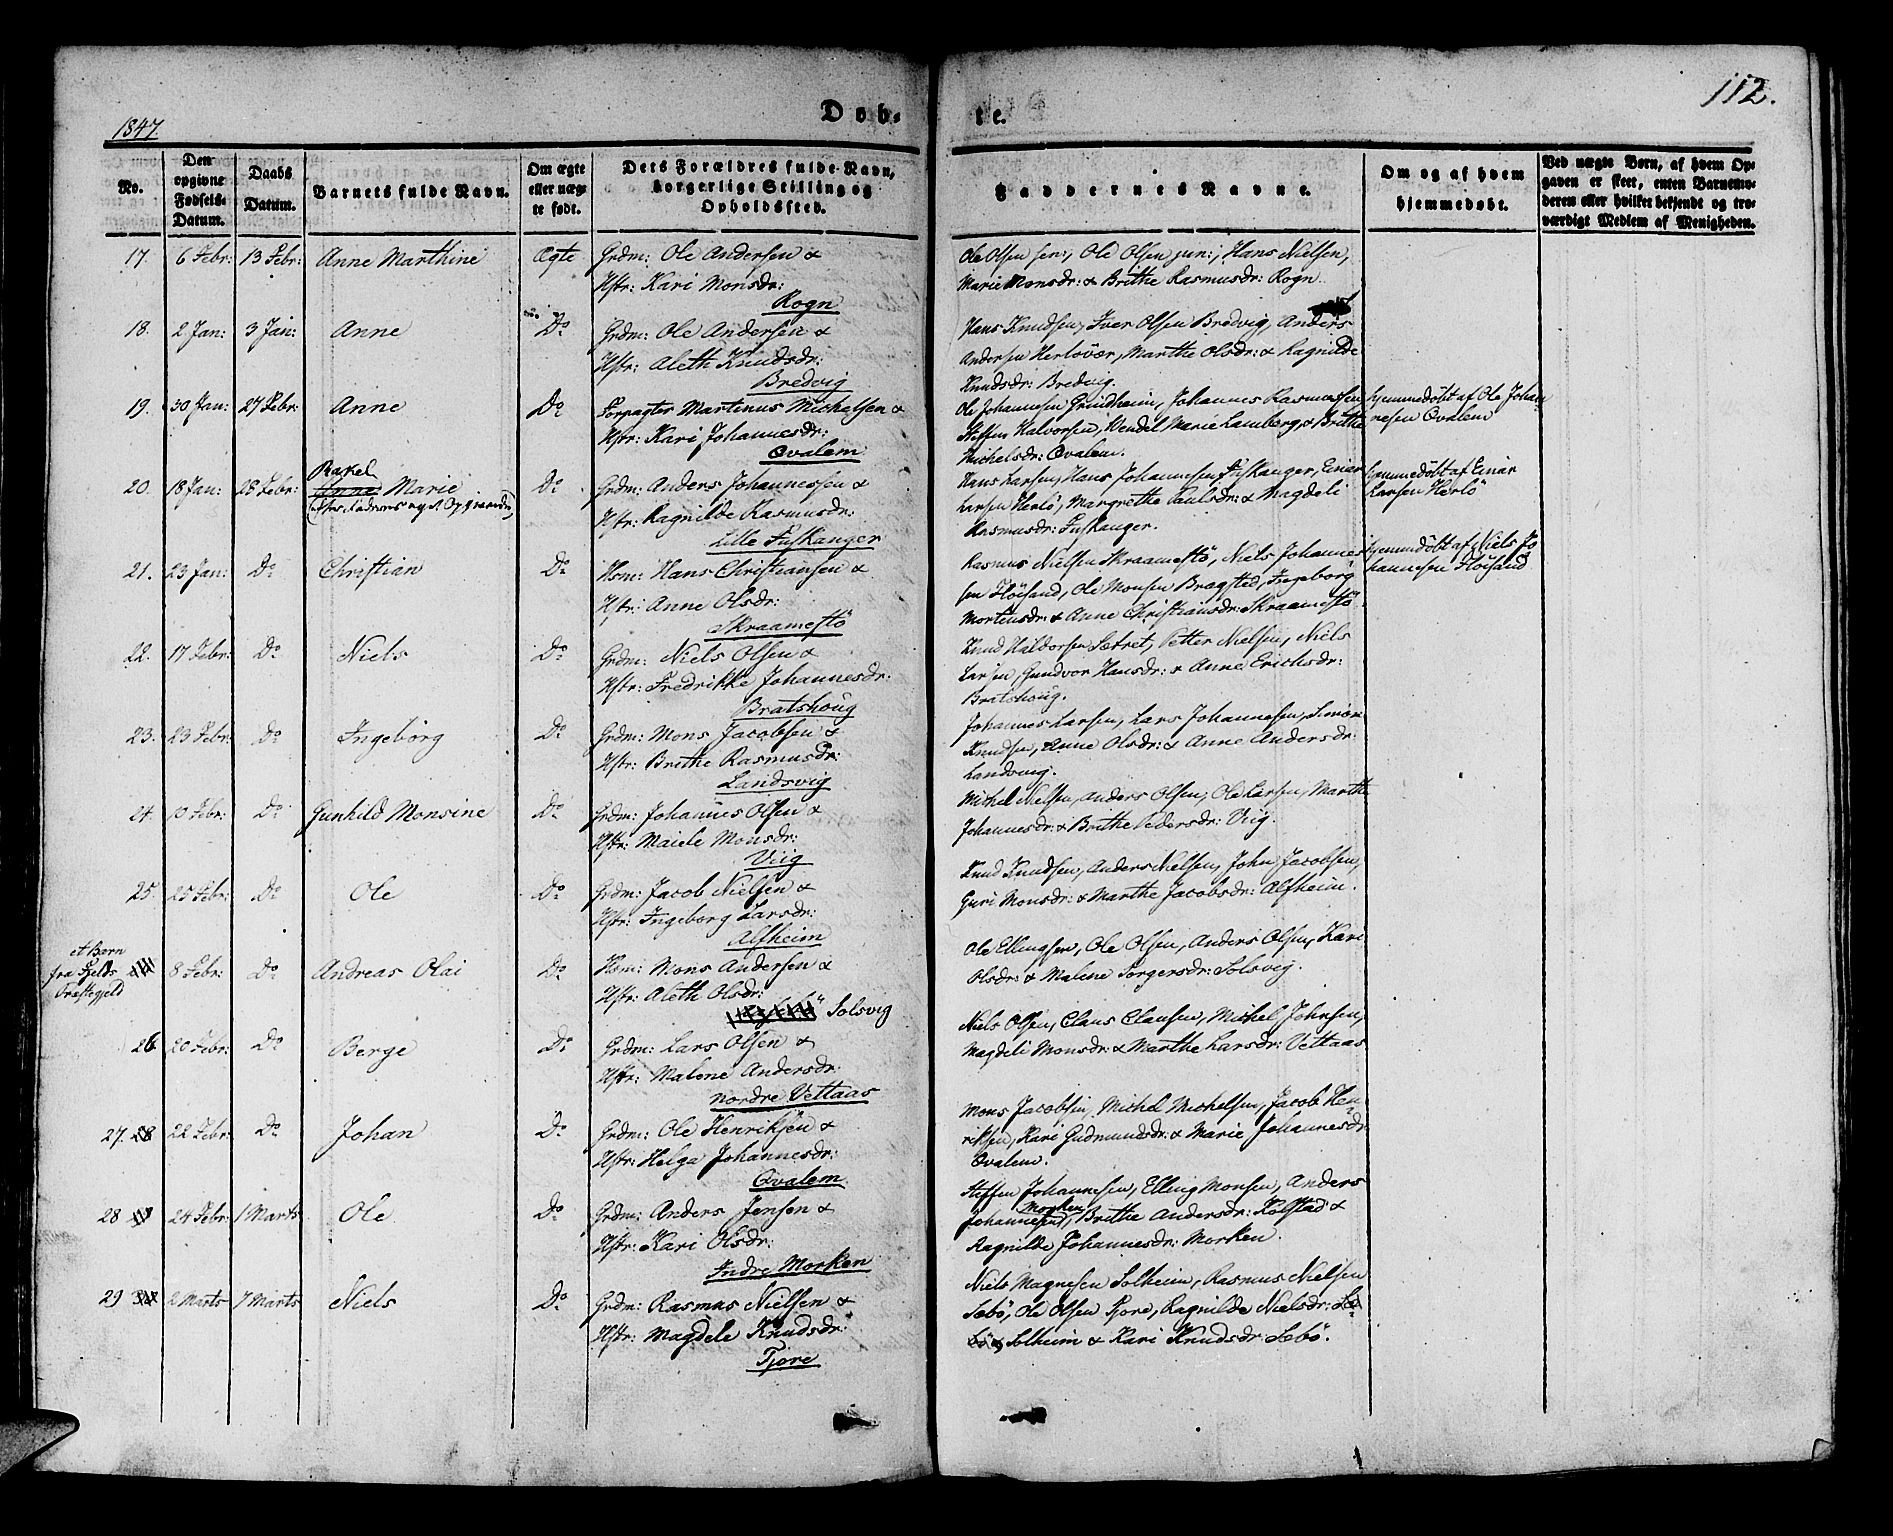 112.
1847.
Døb-
te.
No.
Den opgivne Fødsels-Datum.
Daabs Datum.
Barnets fulde Navn.
Om ægte eller uægte født.
Dets Forældres fulde Navn, borgerlige Stilling og Opholdssted.
Faddernes Navne.
Om og af hvem hjemmedøbt.
Ved uægte Børn, af hvem Opgaven er skeet, enten Barnemoderen eller hvilket bekjendt og troværdigt Medlem af Menigheden.
17. 6 Febr: 13 Febr: Anne Marthine Ægte Grdm: Ole Andersen &
Hstr: Kari Monsdr:
Rogn
Ole Olsen sen:, Ole Olsen jun:, Hans Nielsen,
Marie Monsdr: & Brithe Rasmusdr: Rogn.
18. 2 Jan: 3 Jan: Anne Do Grdm: Ole Andersen &
Hstr: Aleth Knudsdr:
Bredvig
Hans Knudsen, Iver Olsen Bredvig, Anders
Andersen Herlövær, Marthe Olsdr: & Ragnilde
Knudsdr: Bredvig.
19. 30 Jan: 27 Febr: Anne Do Forpagter Martinus Michelsen &
Hstr: Kari Johannesdr:
Qvalem
Ole Johannesen Grindheim, Johannes Rasmussen
Steffen Halvorsen, Wendel Marie Lamberg, & Brithe
Michelsdr: Qvalem.
hjemmedöbt af Ole Johan-
nesen Qvalem
20. 18 Jan: 28 Febr: Rakel
Anne Marie
Do Grdm: Anders Johannessen &
Hstr: Ragnilde Rasmusdr:
Lille Fuskanger
Hans Larsen, Hans Johannesen Fuskanger, Einar
Larsen Herlö, Margrethe Paulsdr: & Magdeli
Rasmusdr: Fuskanger.
hjemmedöbt af Einar
Larsen Herlö
21. 23 Jan: Do Christian Do Hsm: Hans Christiansen &
Hstr: Anne Olsdr:
Skraamestö
Rasmus Nielsen Skraamestö, Niels Johannes-
sen Höisand, Ole Monsen Bragsted, Ingeborg
Mortensdr: & Anne Christiansdr: Skraamestö.
hjemmedöbt af Niels Jo
hannesen Höisand
22. 17 Febr: Do Niels Do Grdm: Niels Olsen &
Hstr: Fredrikke Johannesdr:
Bratshoug
Knud Haldorsen Sætret, Petter Nielsen, Niels
Larsen, Gundvor Hansdr: & Anne Erichsdr:
Bratshoug.
23. 23 Febr: Do Ingeborg Do Grdm: Mons Jacobsen &
Hstr: Brithe Rasmusdr:
Landsvig
Johannes Larsen, Lars Johannesen, Simon
Knudsen, Anne Olsdr: & Anne Andersdr:
Landsvig.
24. 10 Febr: Do Gunhild Monsine Do Grdm: Johannes Olsen &
Hstr: Maiele Monsdr:
Viig
Michel Nielsen, Anders Olsen, Ole Larsen, Marthe
Johannesdr: & Brithe Pedersdr: Viig.
25. 25 Febr: Do Ole Do Grdm: Jacob Nielsen &
Hstr: Ingeborg Larsdr:
Alfheim
Knud Knudsen, Anders Nielsen, John Jacobsen,
Guri Monsdr: & Marthe Jacobsdr: Alfheim.
et Barn
fra Fjelds
Præstegjeld
8 Febr: Do Andreas Olai Do Hsm: Mons Andersen &
Hstr: Aleth Olsdr:
Solsvig
Ole Ellingsen, Ole Olsen, Anders Olsen, Kari
Olsdr: & Malene Torgersdr: Solsvig.
26 20 Febr: Do Berge Do Grdm: Lars Olsen &
Hstr: Malene Andersdr:
nordre Vettaas
Niels Olsen, Claus Clausen, Michel Johnsen,
Magdeli Monsdr: & Marthe Larsdr: Vettaas
27. 28 22 Febr: Do Johan Do Grdm: Ole Henriksen &
Hstr: Helga Johannesdr:
Qvalem.
Mons Jacobsen, Michel Michelsen, Jacob Hen-
riksen, Kari Gudmundsdr: & Marie Johannesdr:
Qvalem.
28 24 Febr: 1 Marts Ole Do Grdm: Anders Jensen &
Hstr: Kari Olsdr:
Indre Morken
Steffen Johannesen, Elling Monsen, Anders
Morken
Johannesen, Brithe Andersdr: Kolstad &
Ragnilde Johannesdr: Morken.
29 2 Marts 7 Marts Niels Do Grdm: Rasmus Nielsen &
Hstr: Magdele Knudsdr:
Tjore
Niels Magnesen Solheim, Rasmus Nielsen
Sebö, Ole Olsen Tjore, Ragnilde Nielsdr: Se-
bö, Solheim & Kari Knudsdr: Sebö.